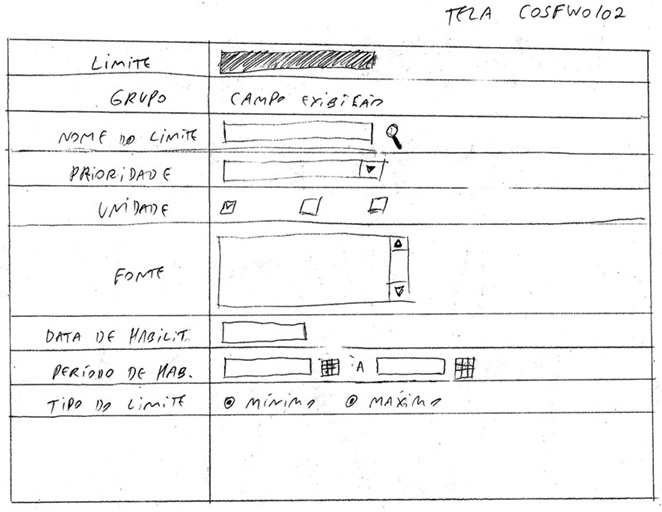 TELA COSFW0102
LIMITE
GRUPO CAMPO EXIBIÇÃO
NOME DO LIMITE
PRIORIDADE
UNIDADE
FONTE
DATA DE HABILIT.
PERÍODO DE HAB. À
TIPO DO LIMITE MÍNIMO MÁXIMO